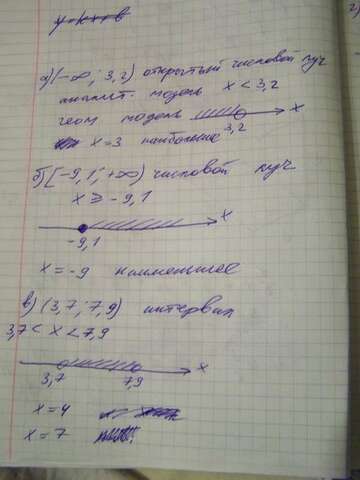 y = kx + b
а) (-∞; 3,2) открытый числовой луч
аналит. модель x < 3,2
геом модель x
3,2
x = 3 наибольшее
б) [-9,1; +∞) числовой луч
x ⩾ -9,1
x
-9,1
x = -9 наименьшее
в) (3,7; 7,9) интервал
3,7 < x < 7,9
x
3,7 7,9
x = 4
x = 7
2)